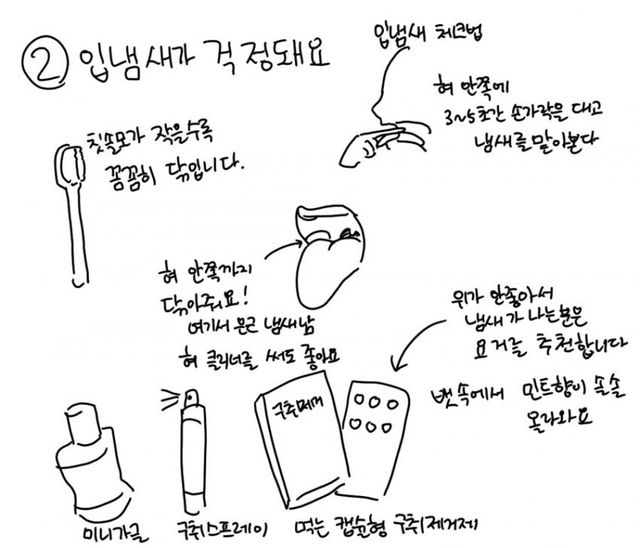 ② 입냄새가 걱정돼요
칫솔모가 작을수록
꼼꼼히 닦입니다.
입냄새 체크법
혀 안쪽에
3~5초간 손가락을 대고
냄새를 맡아본다
혀 안쪽까지
닦아줘요!
여기서 은근 냄새남
혀 클리너를 써도 좋아요
위가 안좋아서
냄새가 나는분은
요거를 추천합니다
뱃속에서 민트향이 솔솔
올라와요
구취제거
미니가글
구취스프레이
먹는 캡슐형 구취제거제